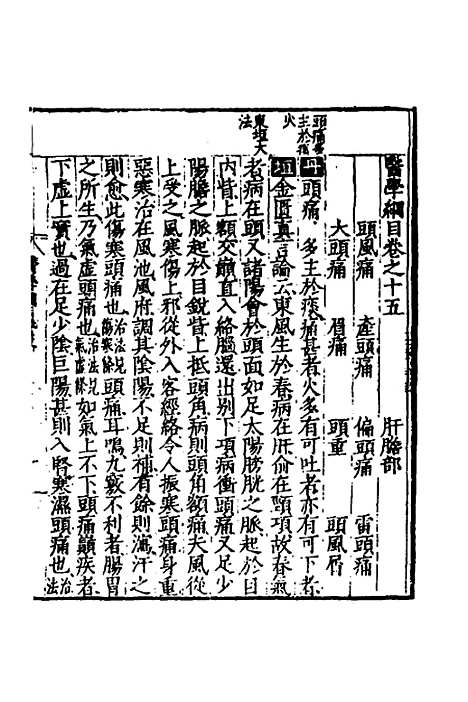 醫學綱目卷之十五　肝膽部
頭風痛　產頭痛　偏頭痛　雷頭痛
大頭痛　眉痛　頭重　頭風屑
頭痛多主於痰火
丹頭痛多主於痰痛甚者火多有可吐者亦有可下者
東垣大法
垣金匱真言論云東風生於春病在肝俞在頸項故春氣
者病在頭又諸陽會於頭面如足太陽膀胱之脈起於目
內眥上額交巔直入絡腦還出別下項病衝頭痛又足少
陽膽之脈起於目銳眥上抵頭角病則頭角額痛夫風從
上受之風寒傷上邪從外入客經絡令人振寒頭痛身重
惡寒治在風池風府調其陰陽不足則補有餘則瀉汗之
則愈此傷寒頭痛也治法見傷寒條頭痛耳鳴九竅不利者腸胃
之所生乃氣虛頭痛也治法見氣虛條如氣上不下頭痛巔疾者
下虛上實也過在足少陰巨陽甚則入腎寒濕頭痛也治法